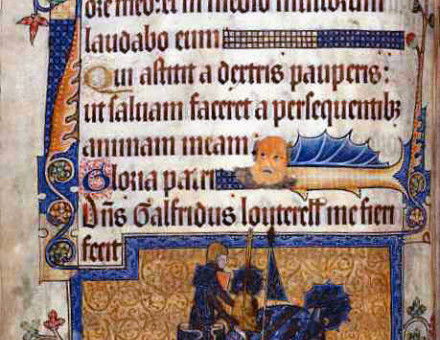 ore meo: et in medio multorum
laudabo eum
Qui astitit a dextris pauperis:
ut saluam faceret a persequentibȝ
animam meam
Gloria patri
Dñs Galfridus louterell me fieri
fecit